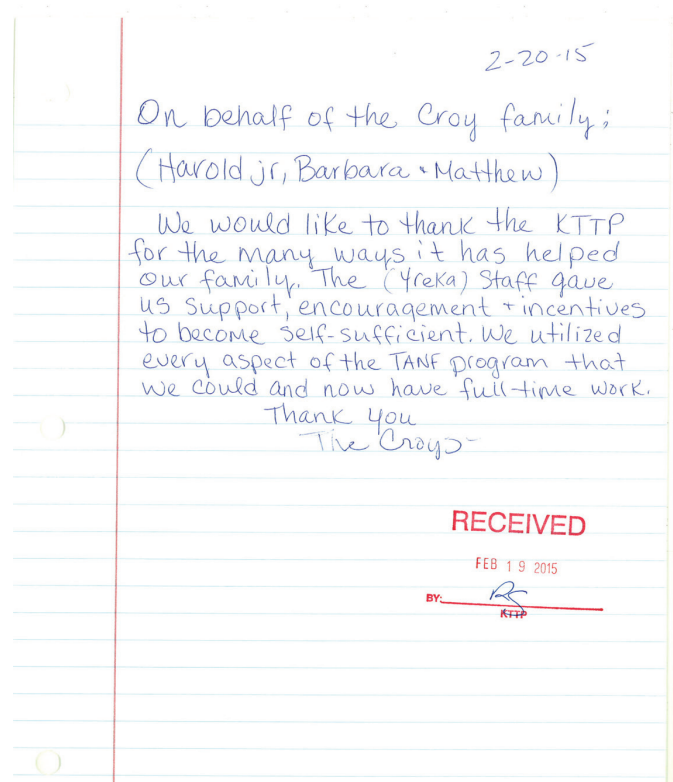 2-20-15
On behalf of the Croy family;
(Harold jr, Barbara + Matthew)
We would like to thank the KTTP
for the many ways it has helped
our family. The (Yreka) Staff gave
us support, encouragement + incentives
to become self-sufficient. We utilized
every aspect of the TANF program that
we could and now have full-time work.
Thank you
The Croys
RECEIVED
FEB 19 2015
BY:
KTTP